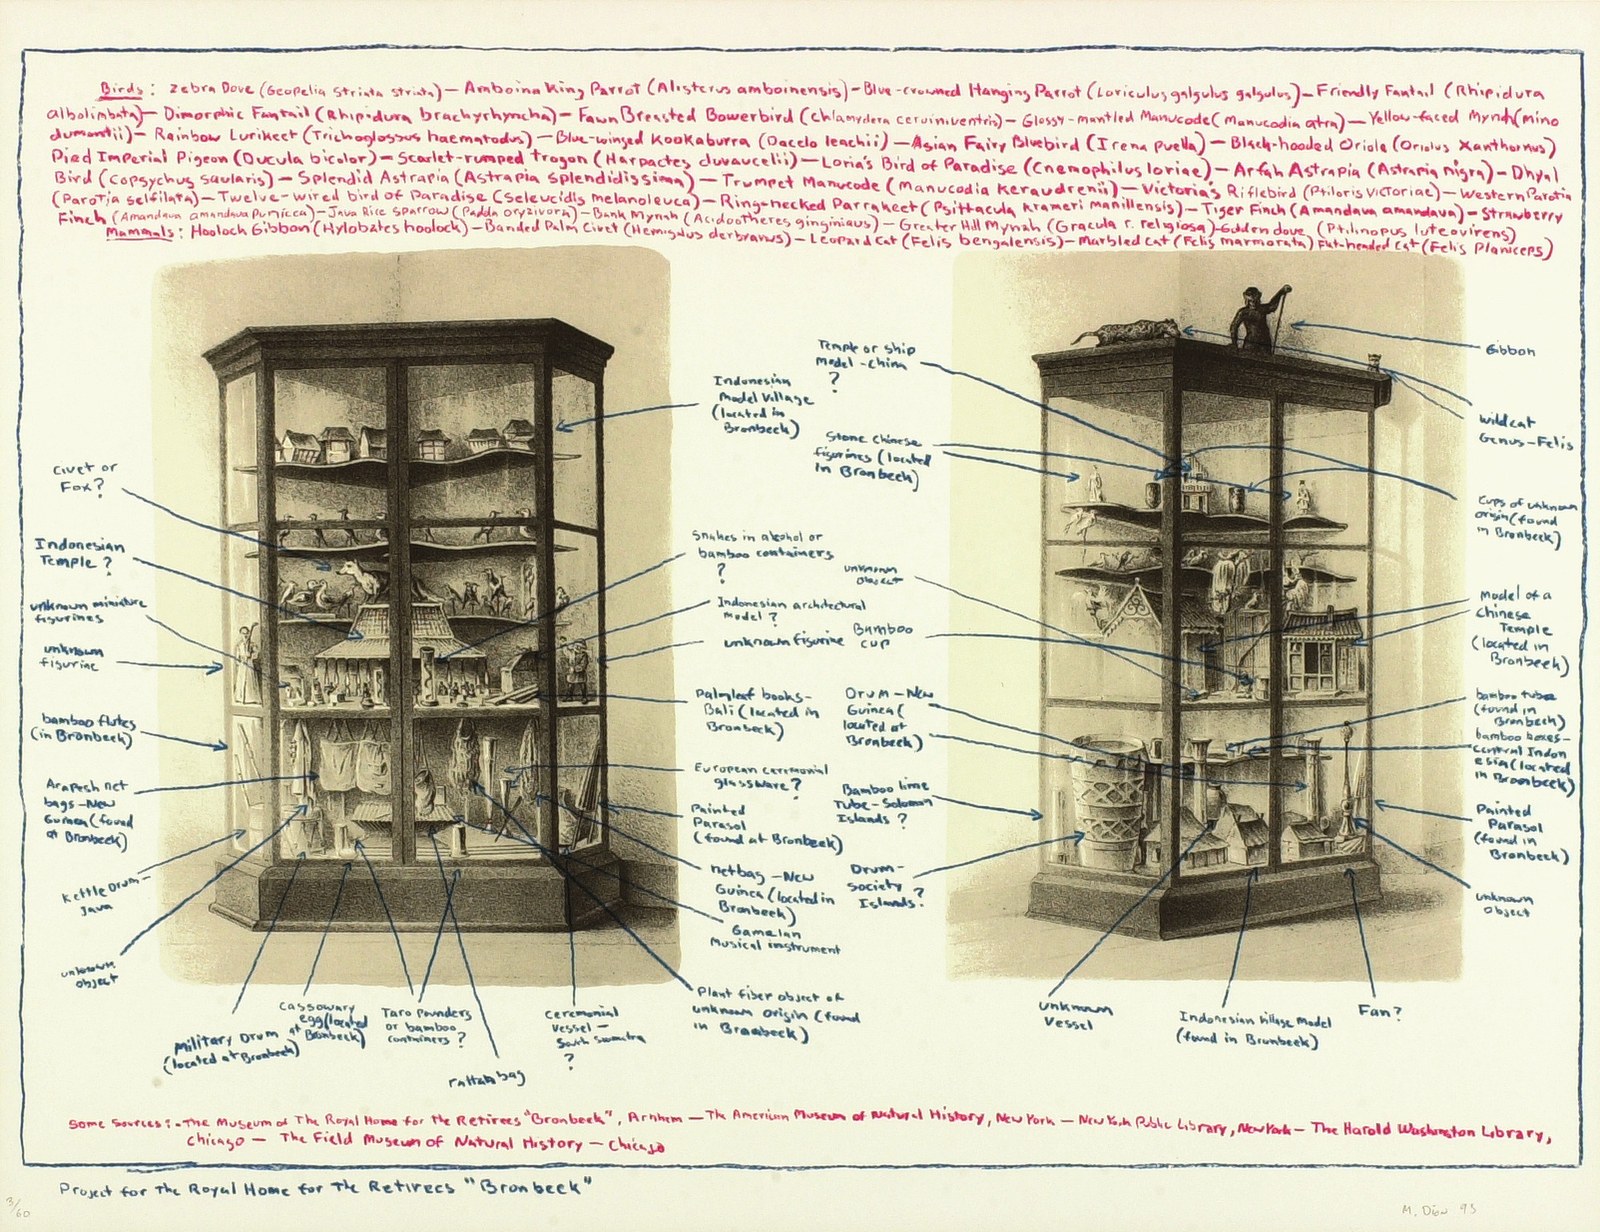 Birds: Zebra Dove (Geopelia Striata striata) — Amboina King Parrot (Alisterus amboinensis) — Blue-crowned Hanging Parrot (Loriculus galgulus galgulus) — Friendly Fantail (Rhipidura
albolimbata) — Dimorphic Fantail (Rhipidura brachyrhyncha) — Fawn Breasted Bowerbird (Chlamydera cerviniventris) — Glossy-mantled Manucode (Manucodia atra) — Yellow-faced Mynah (mino
dumontii) — Rainbow Lurikeet (Trichoglossus haematodus) — Blue-winged Kookaburra (Dacelo leachii) — Asian Fairy Bluebird (Irena puella) — Black-hooded Oriole (Oriolus xanthornus)
Pied Imperial Pigeon (Ducula bicolor) — Scarlet-rumped trogon (Harpactes duvaucelii) — Loria's Bird of Paradise (Cnemophilus loriae) — Arfak Astrapia (Astrapia nigra) — Dhyal
Bird (Copsychus saularis) — Splendid Astrapia (Astrapia splendidissima) — Trumpet Manucode (Manucodia keraudrenii) — Victoria's Riflebird (Ptiloris victoriae) — Western Parotia
(Parotia sefilata) — Twelve-wired bird of Paradise (Seleucidis melanoleuca) — Ring-necked Parrakeet (Psittacula krameri manillensis) — Tiger Finch (Amandava amandava) — Strawberry
Finch (Amandava amandava punicca) — Java Rice Sparrow (Padda oryzivora) — Bank Mynah (Acidootheres ginginiaus) — Greater Hill Mynah (Gracula r. religiosa) — Golden dove (Ptilinopus luteovirens)
Mammals: Hoolock Gibbon (Hylobates hoolock) — Banded Palm Civet (Hemigalus derbyanus) — Leopard Cat (Felis bengalensis) — Marbled Cat (Felis marmorata) Flat-headed Cat (Felis Planiceps)
Civet or
Fox?
Indonesian
Temple?
unknown miniature
figurines
unknown
figurine
bamboo flutes
(in Bronbeek)
Arapesh net
bags — New
Guinea (found
at Bronbeek)
Kettle Drum —
Java
unknown
object
Military Drum
(located at Bronbeek)
Cassowary
egg (located
at Bronbeek)
Taro pounders
or bamboo
containers?
rattan bag
Ceremonial
Vessel —
South Sumatra
?
Indonesian
Model Village
(located in
Bronbeek)
Snakes in alcohol or
bamboo containers
?
Indonesian architectural
model?
unknown figurine
Palmleaf books —
Bali (located in
Bronbeek)
European ceremonial
glassware?
Painted
Parasol
(found at Bronbeek)
netbag — New
Guinea (located in
Bronbeek)
Gamelan
Musical instrument
Plant fiber object of
unknown origin (found
in Bronbeek)
Temple or ship
Model — China
?
Stone Chinese
figurines (located
in Bronbeek)
unknown
object
Bamboo
cup
Drum — New
Guinea (
located at
Bronbeek)
Bamboo lime
Tube — Solomon
Islands?
Drum —
Society
Islands?
unknown
Vessel
Indonesian Village Model
(found in Bronbeek)
Fan?
Gibbon
wildcat
Genus — Felis
Cups of unknown
origin (found
in Bronbeek)
Model of a
Chinese
Temple
(located in
Bronbeek)
bamboo tubes
(found in
Bronbeek)
bamboo boxes —
central Indon
esia (located
in Bronbeek)
Painted
Parasol
(found in
Bronbeek)
unknown
object
Some Sources: — The Museum of The Royal Home for the Retirees "Bronbeek", Arnhem — The American Museum of Natural History, New York — New York Public Library, New York — The Harold Washington Library,
Chicago — The Field Museum of Natural History — Chicago
Project for The Royal Home for The Retirees "Bronbeek"
3/60
M. Dion 93